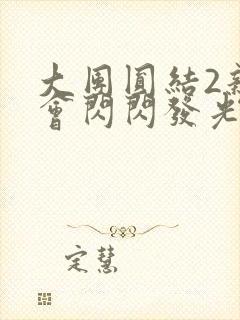 大圓圓結2新
會閃閃發光
定慧